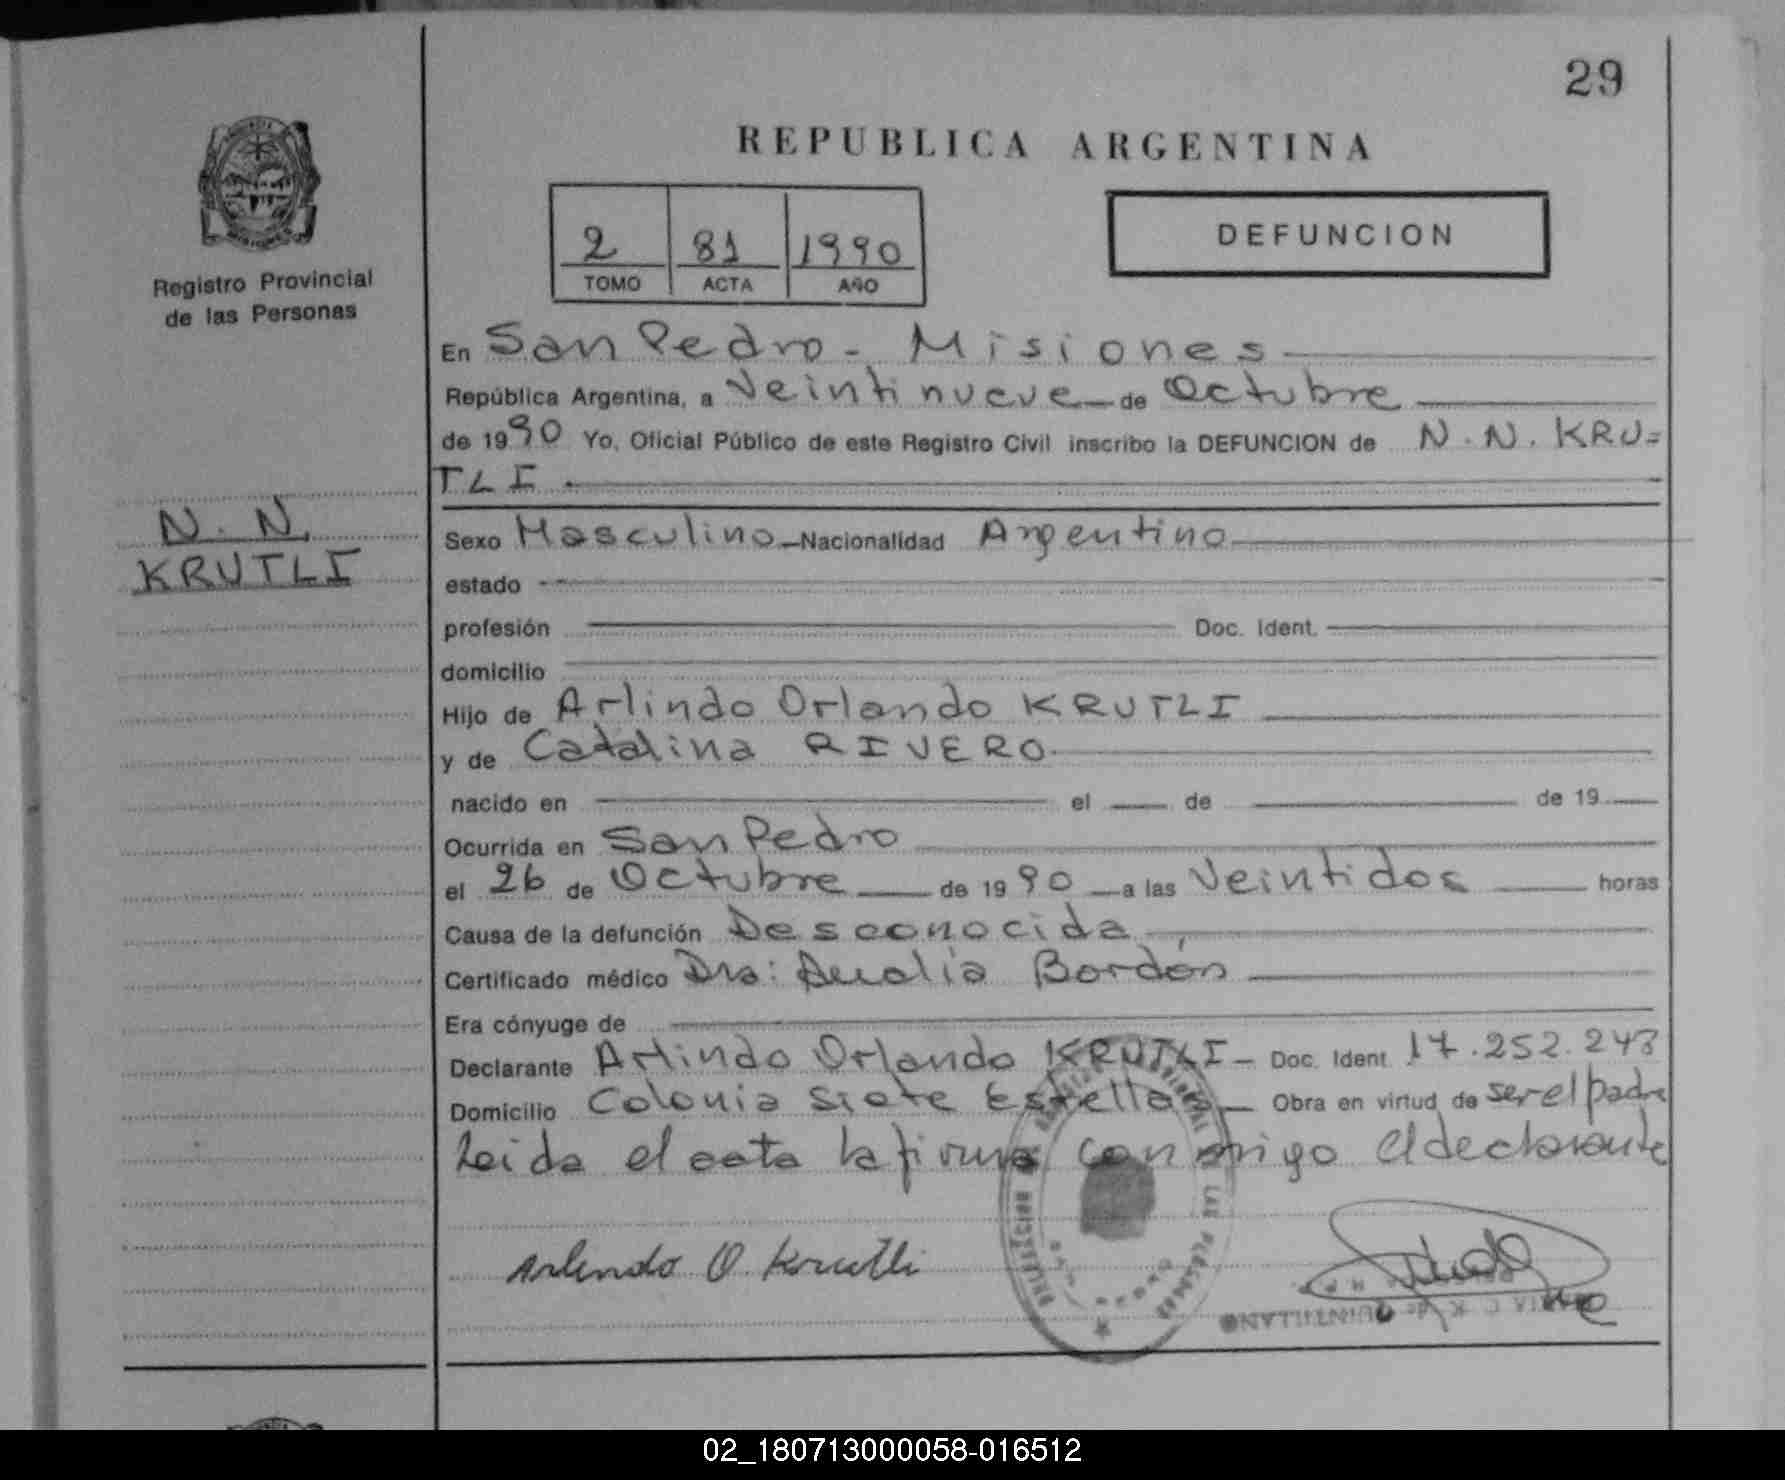 29
REPUBLICA ARGENTINA
2 81 1990
TOMO ACTA AÑO
DEFUNCION
Registro Provincial
de las Personas
N. N.
KRUTLI
En San Pedro - Misiones
República Argentina, a Veintinueve de Octubre
de 1990 Yo, Oficial Público de este Registro Civil inscribo la DEFUNCION de N. N. KRU=
TLI.
Sexo Masculino Nacionalidad Argentino
estado
profesión Doc. Ident.
domicilio
Hijo de Arlindo Orlando KRUTLI
y de Catalina RIVERO
nacido en el de de 19
Ocurrida en San Pedro
el 26 de Octubre de 1990 a las Veintidos horas
Causa de la defunción Desconocida
Certificado médico Dra: Bordón
Era cónyuge de
Declarante Arlindo Orlando KRUTLI Doc. Ident. 17.252.243
Domicilio Colonia Siete Estrellas Obra en virtud de ser el padre
Leida el acta la firma conmigo el declarante
Arlindo O. Krutli
QUINTILLANO
02_180713000058-016512